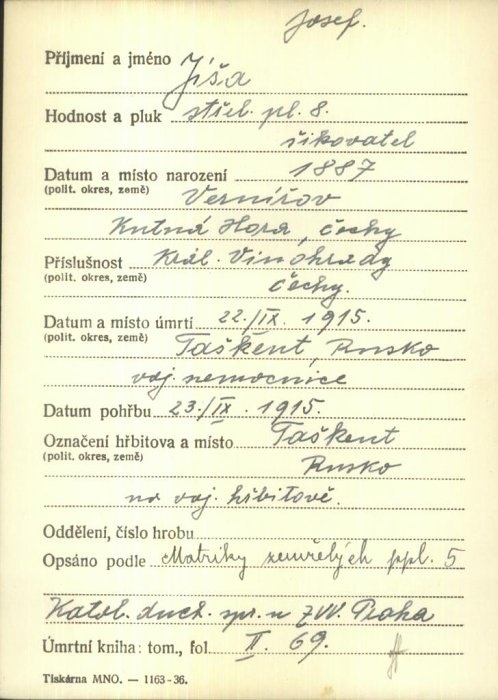 Josef.
Příjmení a jméno Jíša
Hodnost a pluk střel. pl. 8.
šikovatel
Datum a místo narození 1887
(polit. okres, země) Vernířov
Kutná Hora, čechy
Příslušnost Král. Vinohrady
(polit. okres, země) čechy.
Datum a místo úmrtí 22./IX. 1915.
(polit. okres, země) Taškent, Rusko
voj. nemocnice
Datum pohřbu 23./IX. 1915.
Označení hřbitova a místo Taškent
(polit. okres, země) Rusko
na voj. hřbitově.
Oddělení, číslo hrobu
Opsáno podle Matriky zemřelých ppl. 5
Katol. duch. spr. u ZVV. Praha
Úmrtní kniha: tom., fol. II. 69.
Tiskárna MNO. — 1163-36.